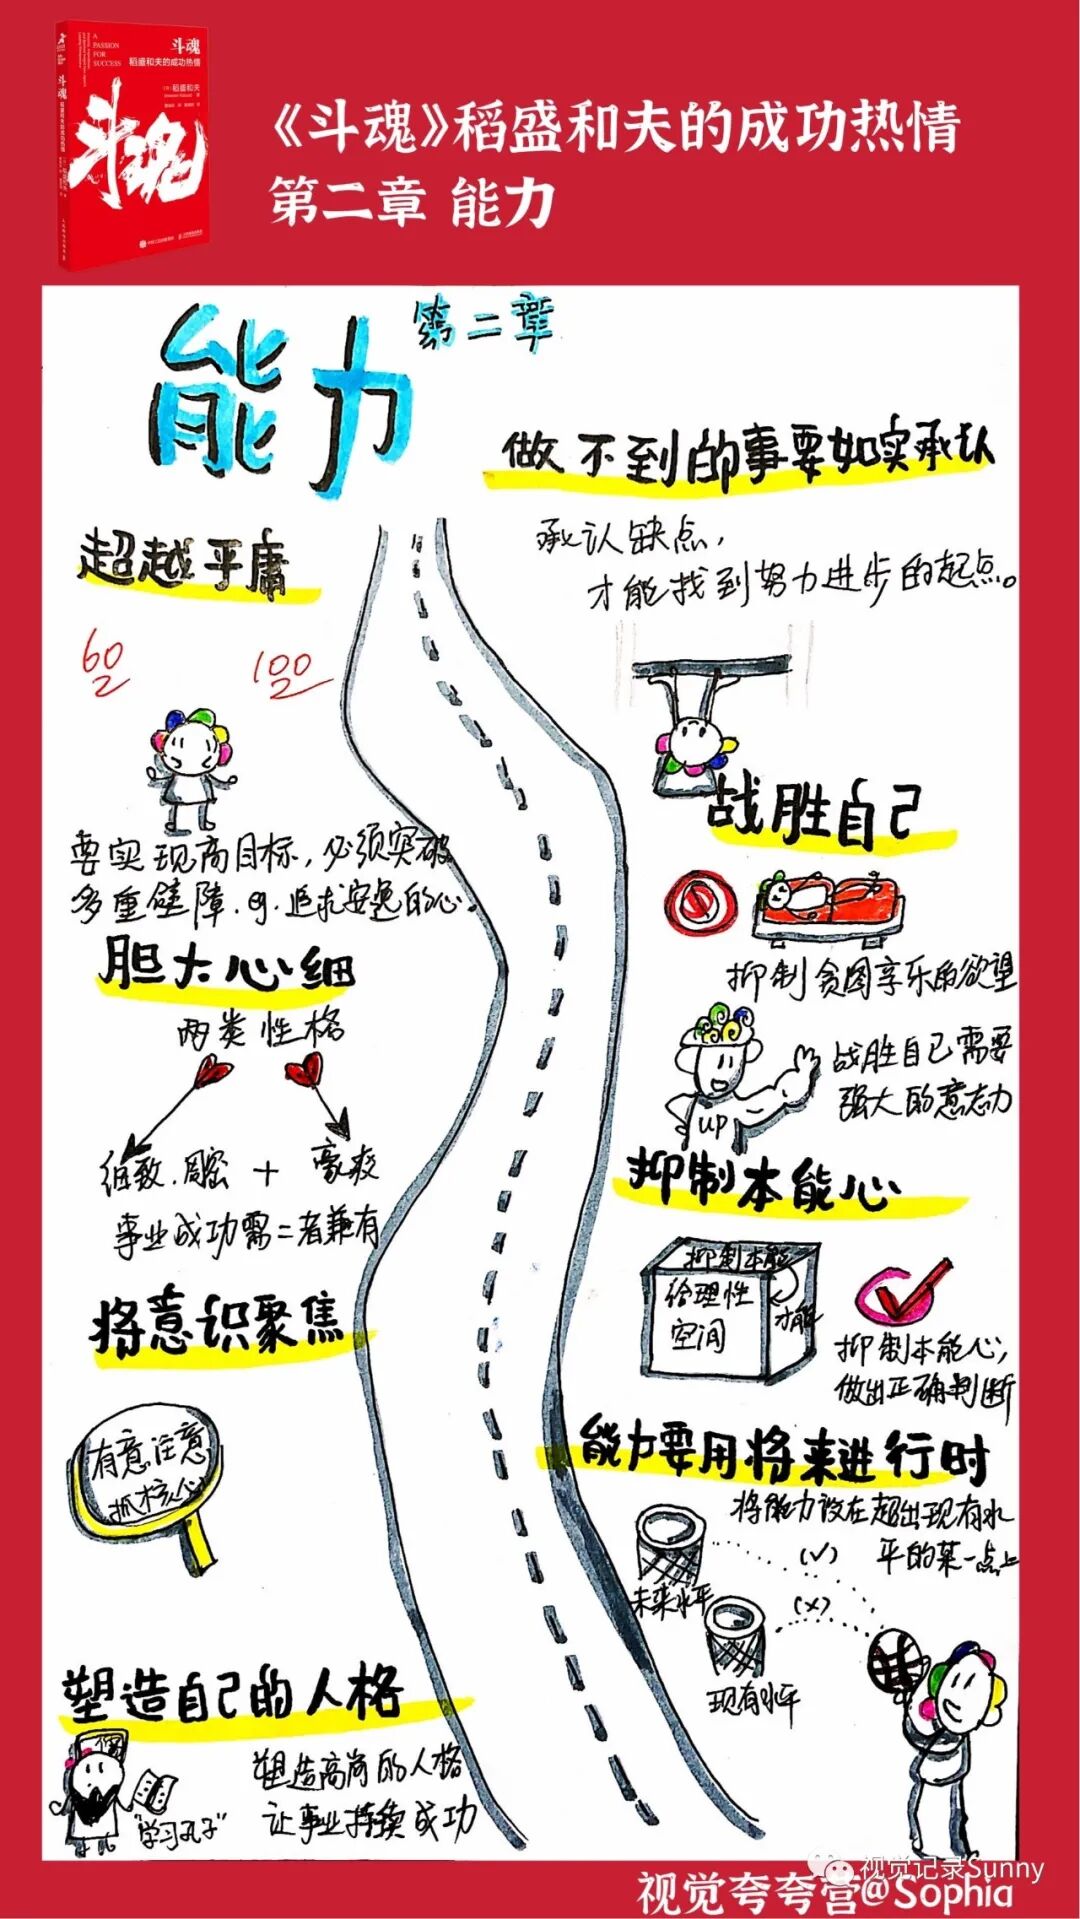 A
PASSION
FOR
SUCCESS
斗魂
稻盛和夫的成功热情
稻盛和夫
斗魂
稻盛和夫的成功热情
斗魂
《斗魂》稻盛和夫的成功热情
第二章 能力
能力
第二章
做不到的事要如实承认
承认缺点,
才能找到努力进步的起点。
超越平庸
60
100
要实现高目标,必须突破
多重壁障.eg.追求安逸的心。
战胜自己
抑制贪图享乐的欲望
战胜自己需要
强大的意志力
up
胆大心细
两类性格
细致.周密 + 豪爽
事业成功需二者兼有
抑制本能心
抑制本能
给理性
空间
才能
抑制本能心,
做出正确判断
将意识聚焦
有意注意
抓核心
能力要用将来进行时
将能力设在超出现有水
平的某一点上
未来水平
(√)
(×)
现有水平
塑造自己的人格
塑造高尚的人格
让事业持续成功
"学习孔子"
视觉记录Sunny
视觉夸夸营@Sophia